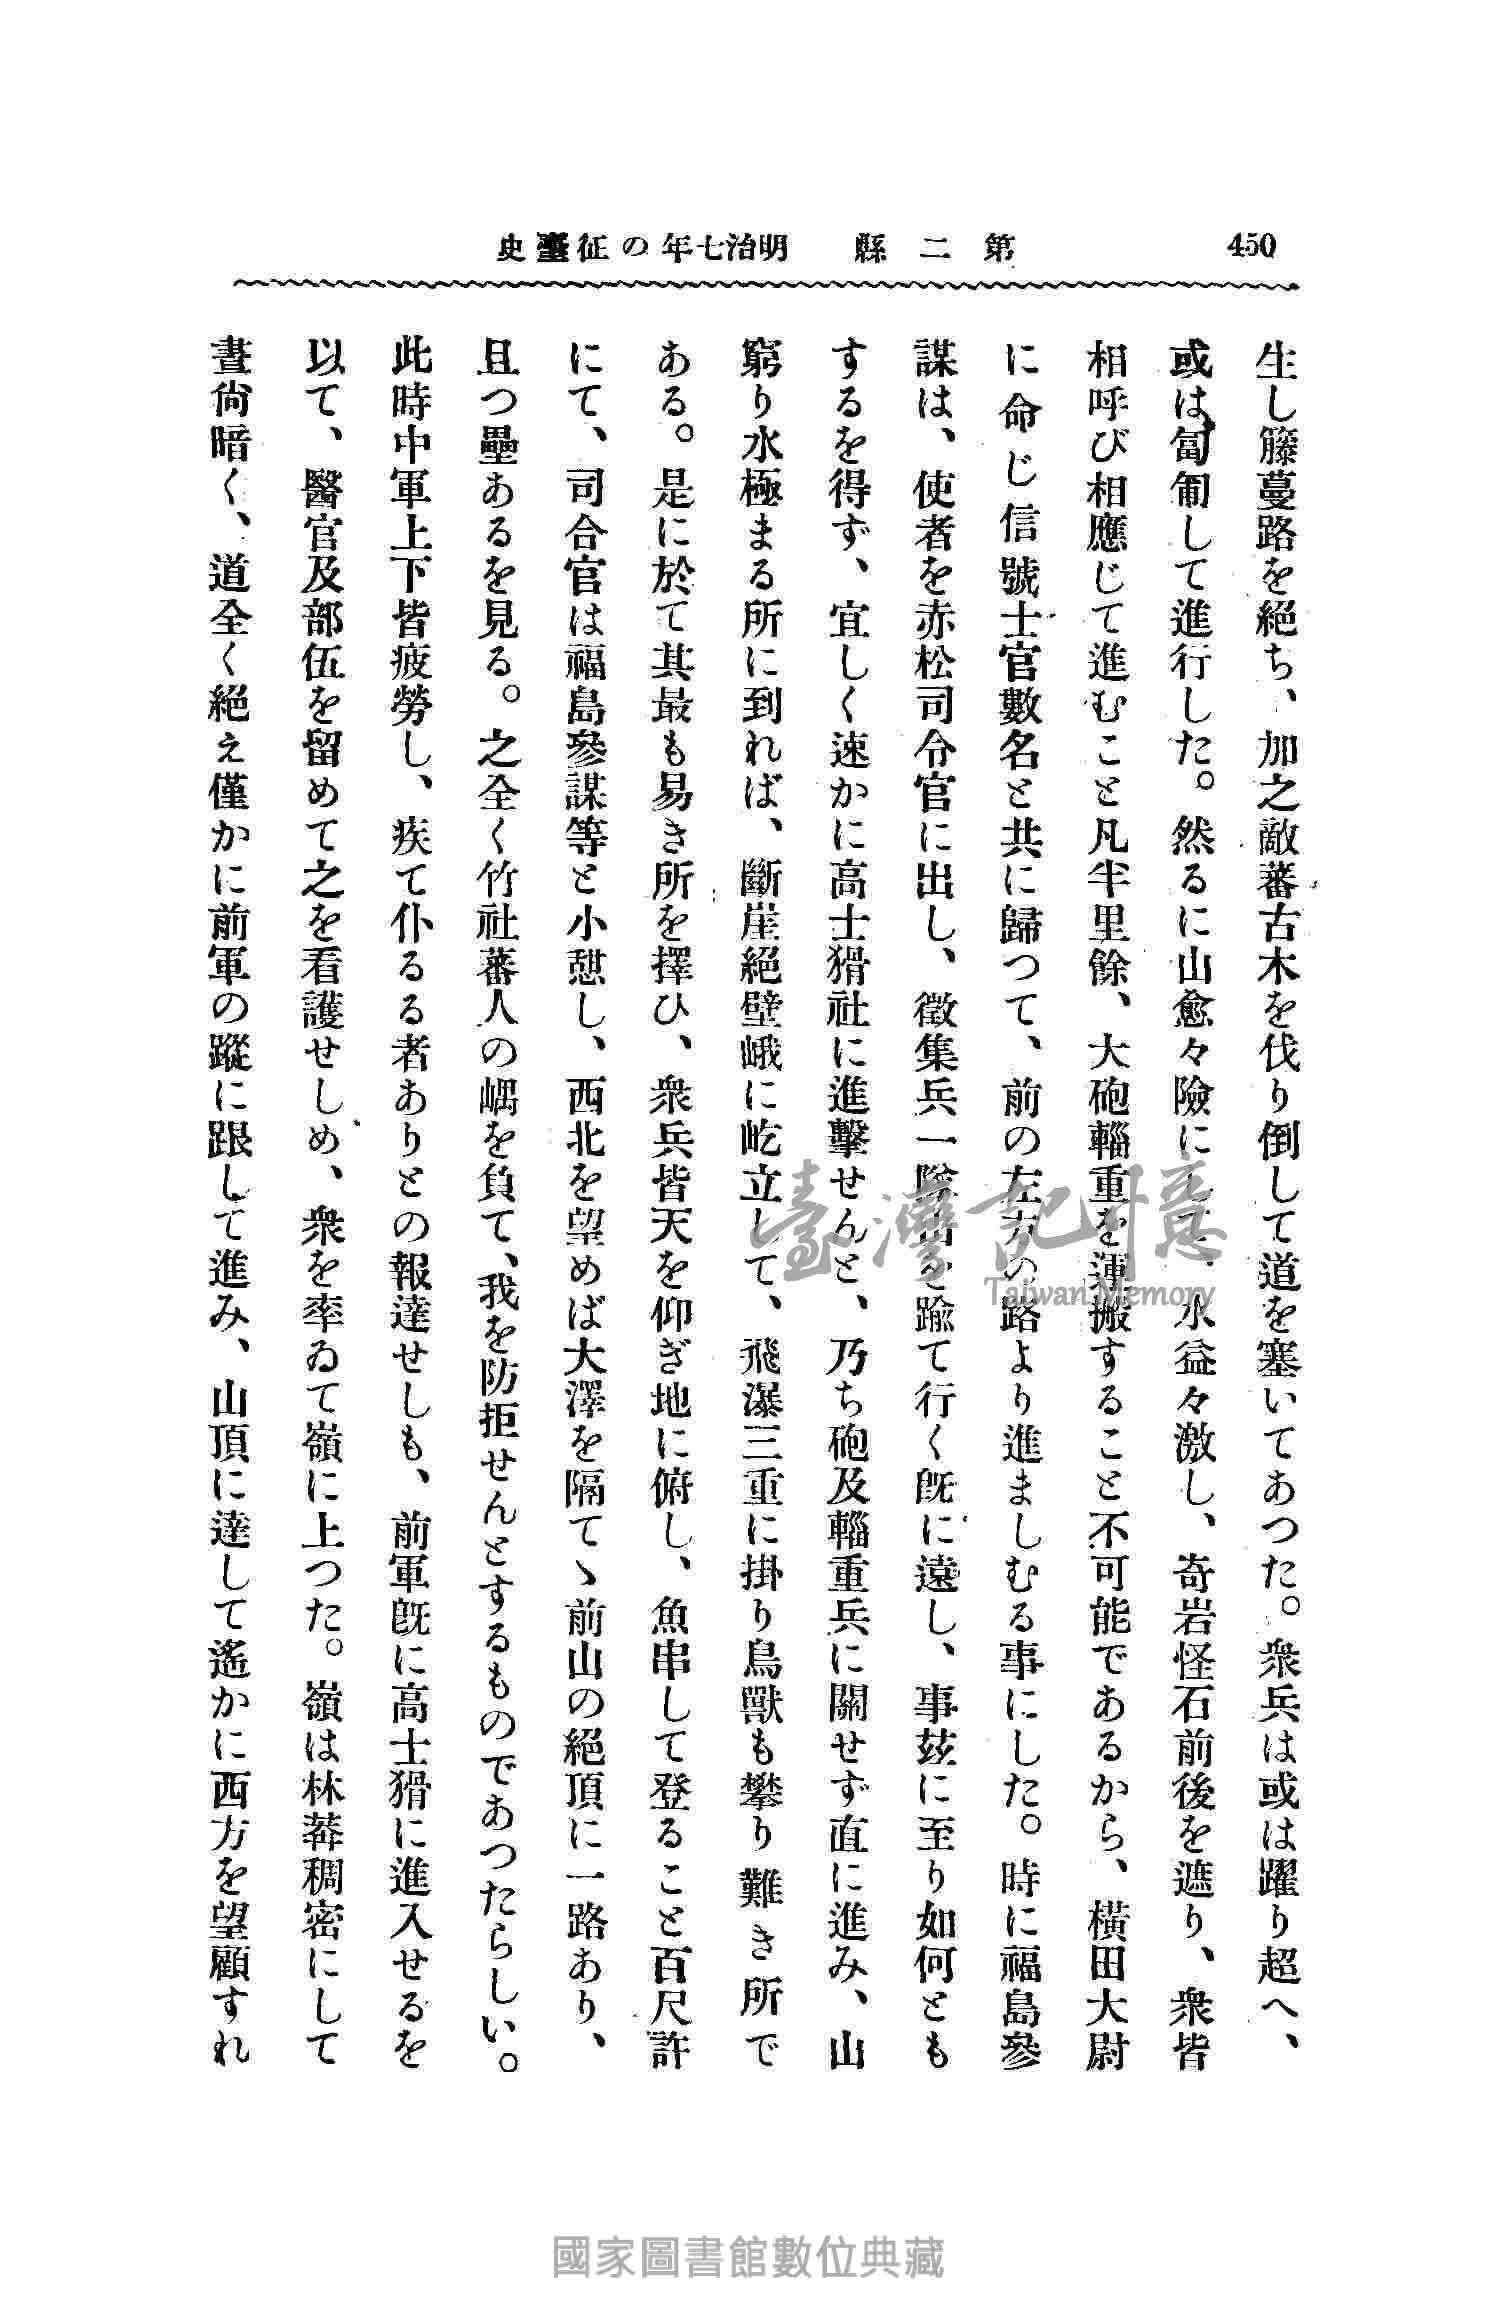 450
第二縣 明治七年の征臺史
生し籐蔓路を絕ち、加之敵蕃古木を伐り倒して道を塞いてあつた。衆兵は或は躍り超へ、
或は匐匍して進行した。然るに山愈々險にして、水益々激し、奇岩怪石前後を遮り、衆皆
相呼び相應じて進むこと凡半里餘、大砲輜重を運搬すること不可能であるから、橫田大尉
に命じ信號士官數名と共に歸つて、前の左方の路より進ましむる事にした。時に福島參
謀は、使者を赤松司令官に出し、徵集兵一隊山を踰て行く旣に遠し、事玆に至り如何とも
するを得ず、宜しく速かに高士猾社に進擊せんと、乃ち砲及輜重兵に關せず直に進み、山
窮り水極まる所に到れば、斷崖絕壁峨に屹立して、飛瀑三重に掛り鳥獸も攀り難き所で
ある。是に於て其最も易き所を擇ひ、衆兵皆天を仰ぎ地に俯し、魚串して登ること百尺許
にて、司合官は福島參謀等と小憇し、西北を望めば大澤を隔てゝ前山の絕頂に一路あり、
且つ壘あるを見る。之全く竹社蕃人の嵎を負て、我を防拒せんとするものであつたらしい。
此時中軍上下皆疲勞し、疾て仆るる者ありとの報達せしも、前軍旣に高士猾に進入せるを
以て、醫官及部伍を留めて之を看護せしめ、衆を率ゐて嶺に上つた。嶺は林莽稠密にして
晝尙暗く、道全く絕え僅かに前軍の蹤に跟して進み、山頂に達して遙かに西方を望顧すれ
臺灣記憶
Taiwan Memory
國家圖書館數位典藏